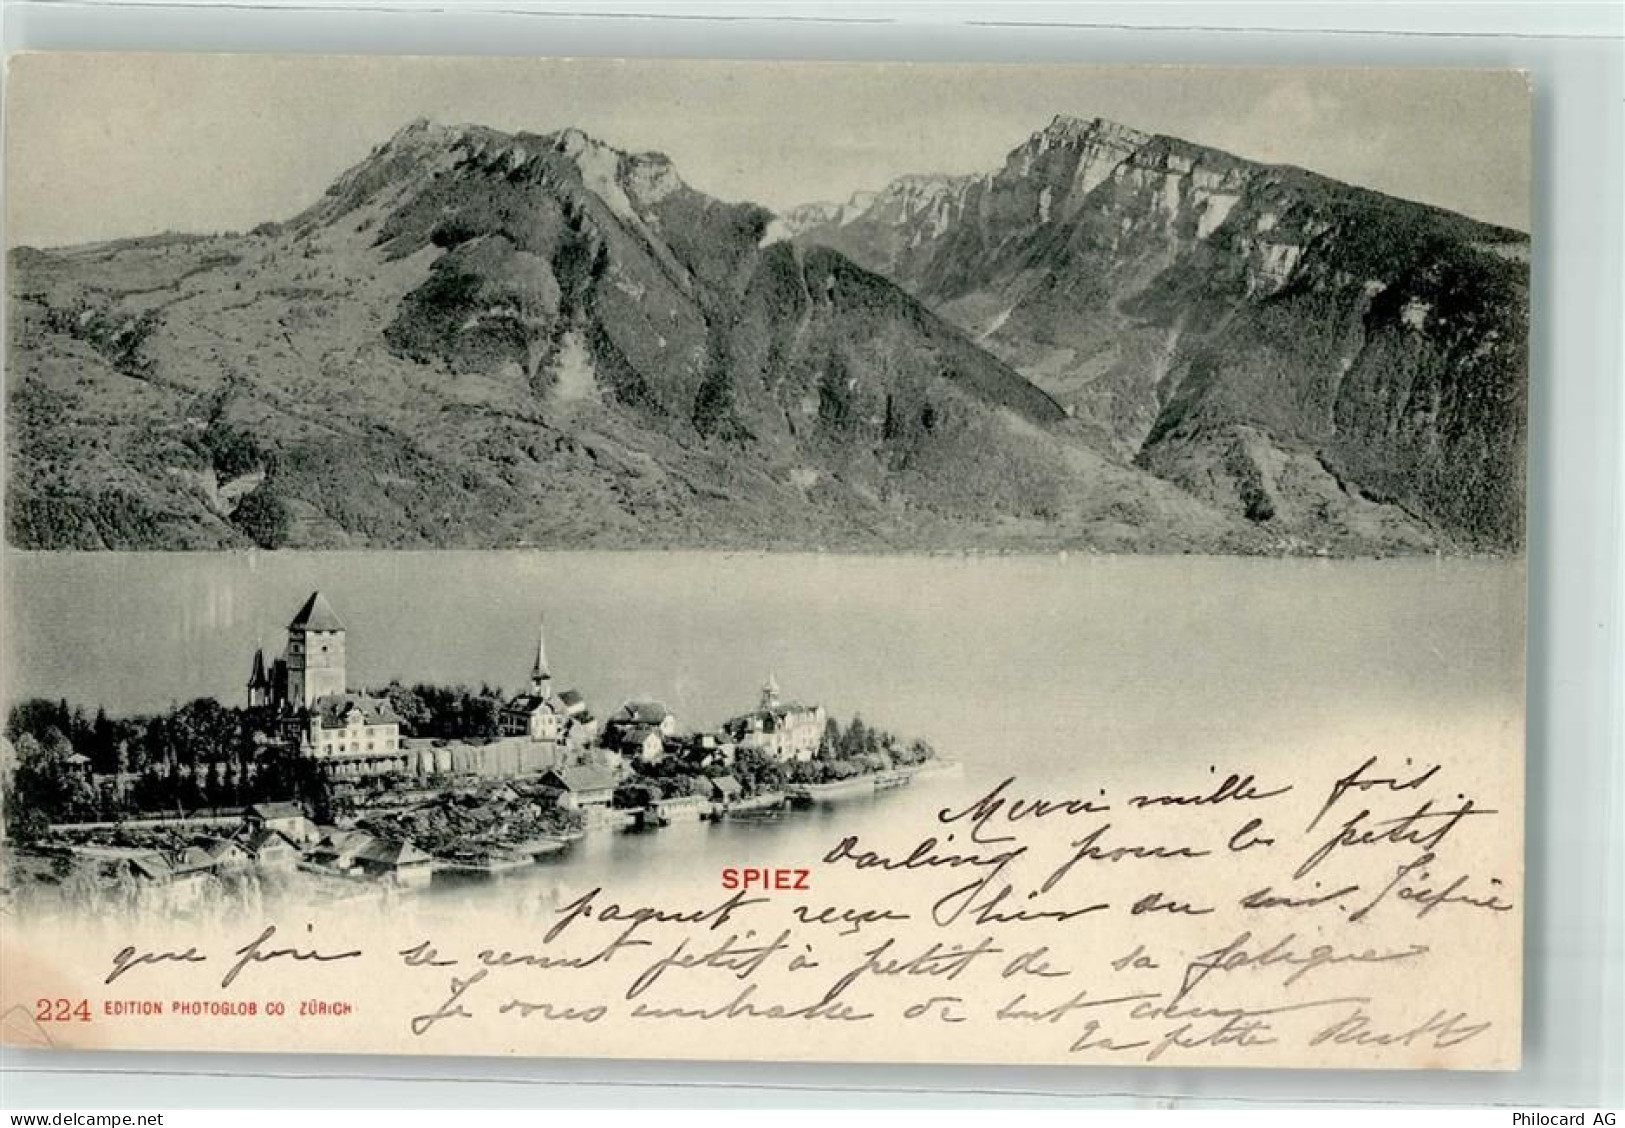 Merci mille fois
Darling pour le petit
SPIEZ
paquet reçu hier au soir. J'espère
que père se remet petit à petit de sa fatigue
224 EDITION PHOTOGLOB CO ZÜRICH
Je vous embrasse de tout cœur
La petite
delcampe.net
Philocard AG